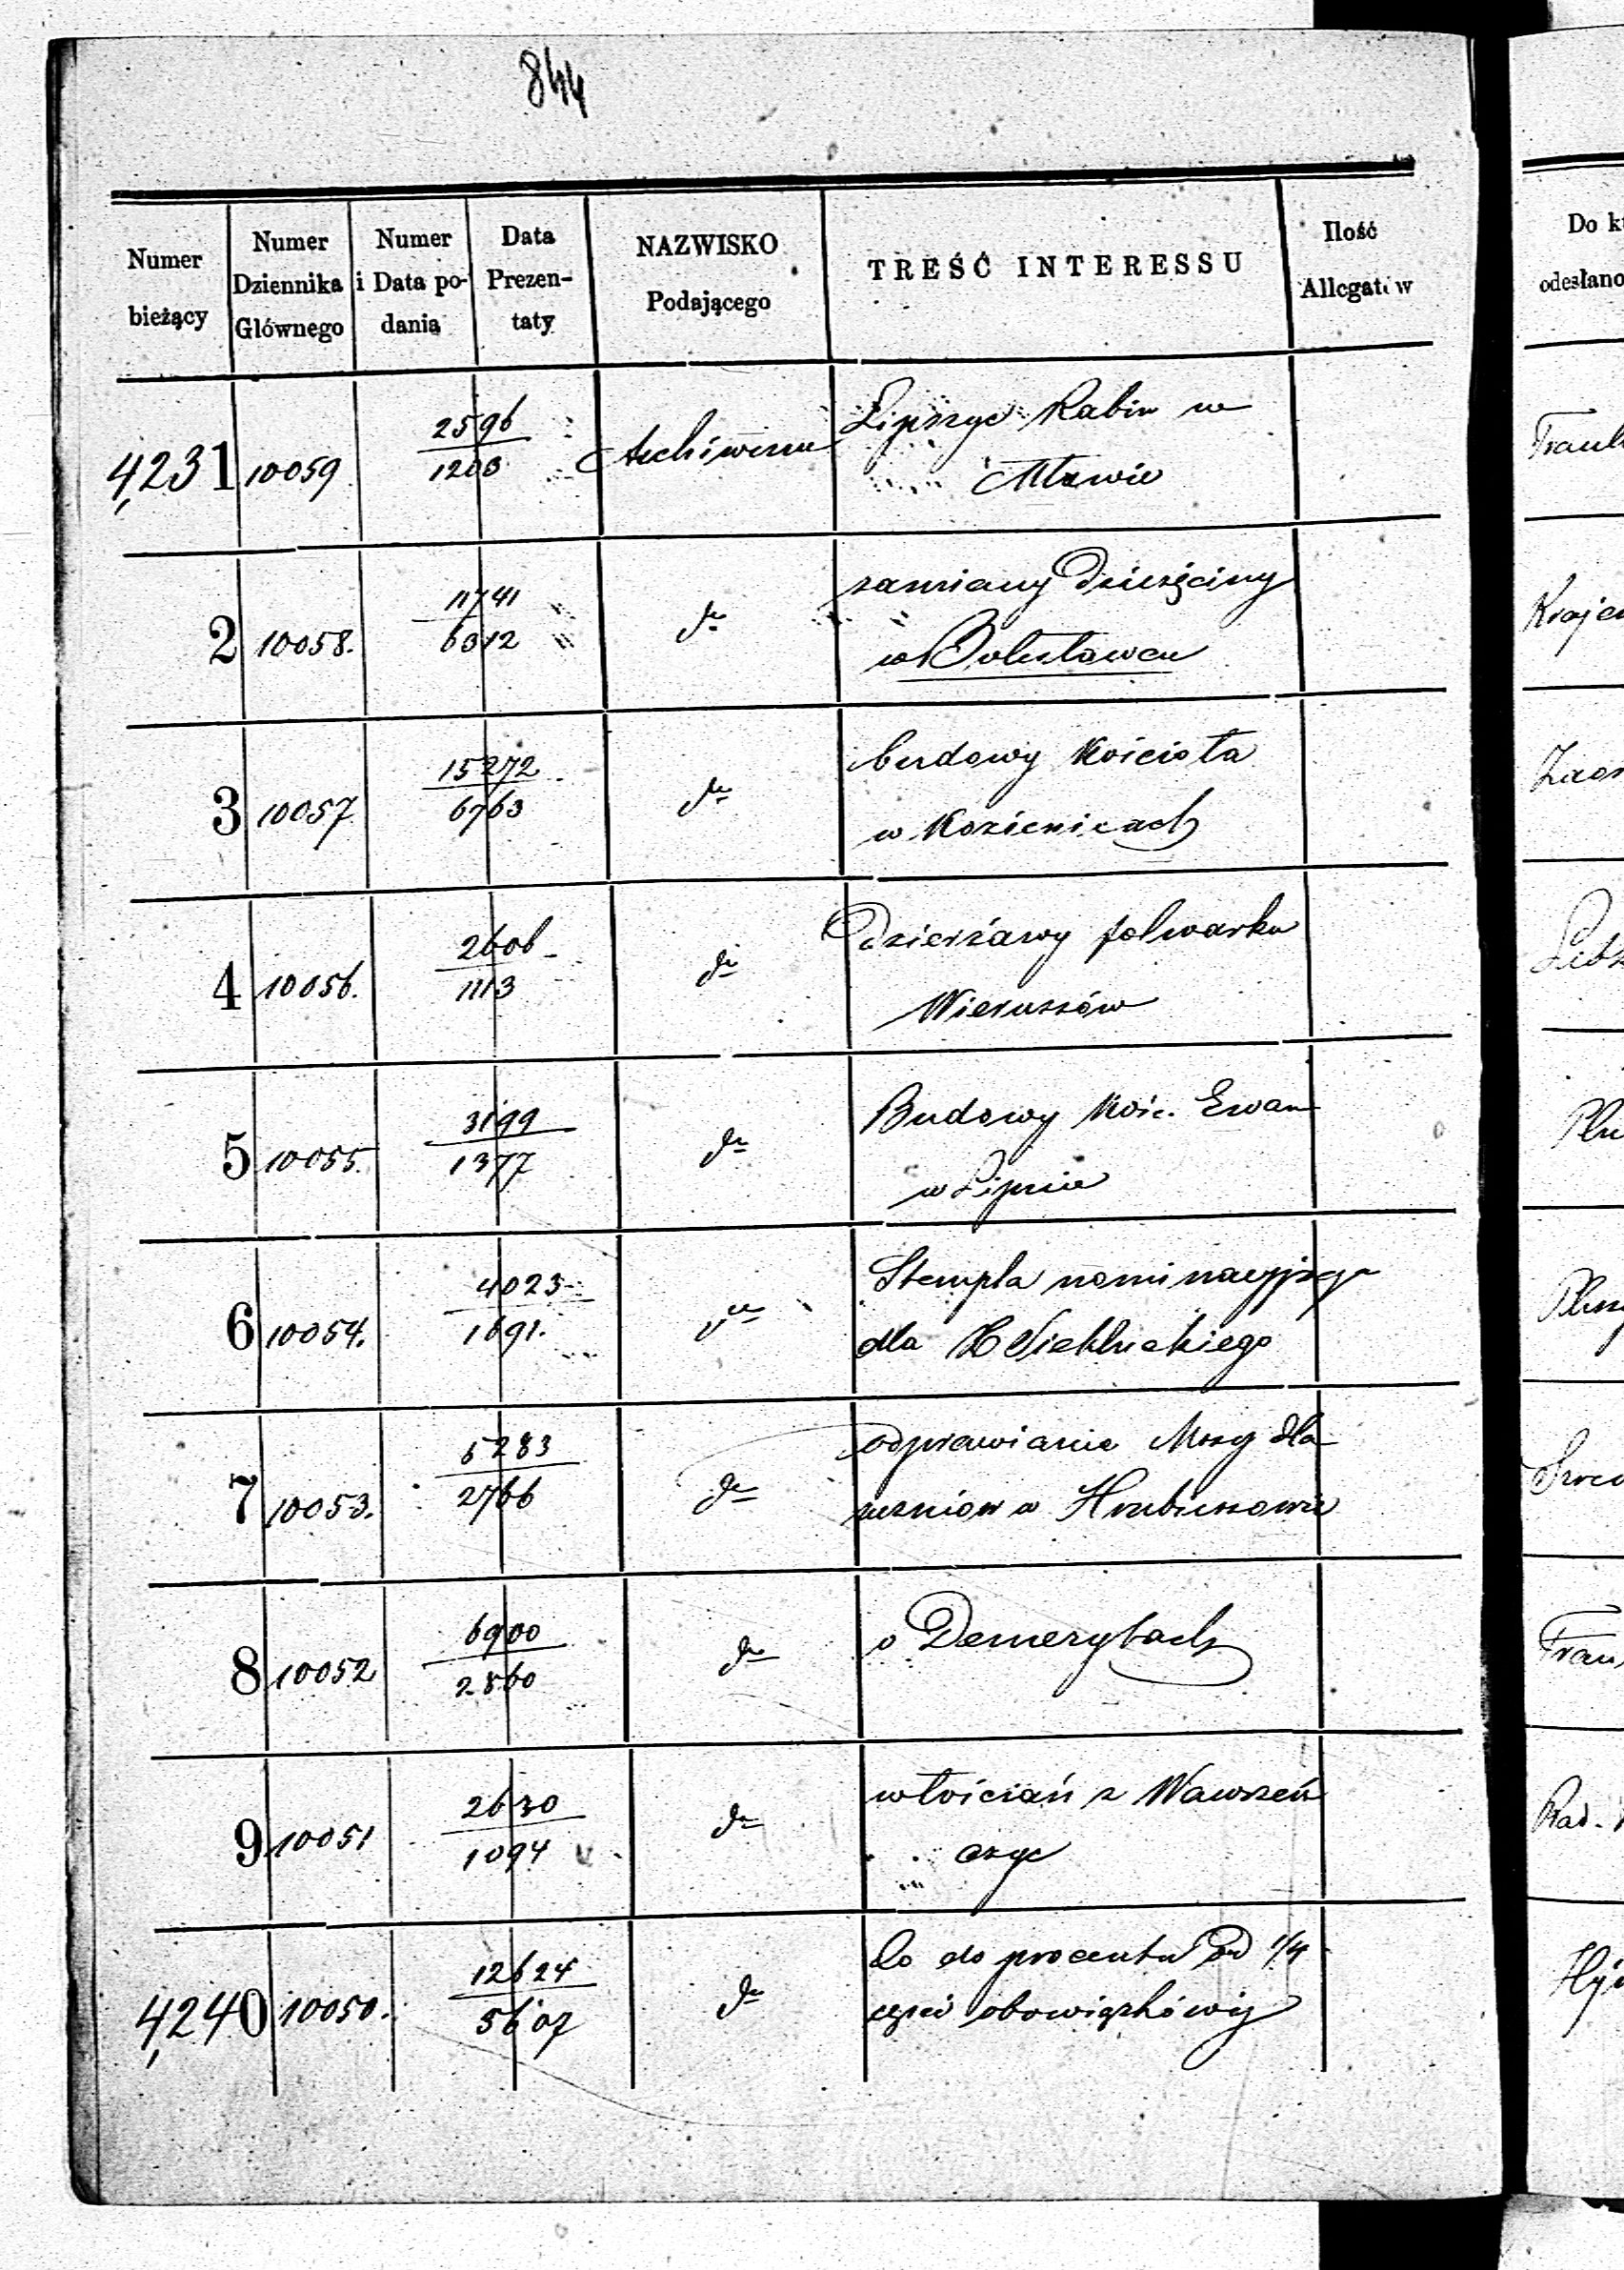 844
Numer bieżący | Numer Dziennika Głównego | Numer i Data podania | Data Prezentaty | NAZWISKO Podającego | TREŚĆ INTERESSU | Ilość Allegatów
4,231 | 10059 | 2596 / 1203 | Archiwum | Lipszyc Rabin w
Mławie
2 | 10058. | 11741 / 6312 | do | zamiany Dziesięciny
w Bolesławcu
3 | 10057 | 15272 / 6763 | do | budowy Kościoła
w Kozienicach
4 | 10056. | 2606 / 1113 | do | Dzierżawy folwarku
Wieruszów
5 | 10055. | 3199 / 1377 | do | Budowy Kośc. Ewan
w Lipnie
6 | 10054. | 4023 / 1691. | do | Stempla nominacyjnego
dla Siekluckiego
7 | 10053. | 5283 / 2766 | do | odprawianie Mszy dla
uczniów w Hrubieszowie
8 | 10052 | 6900 / 2860 | do | o Demerytach
9 | 10051 | 2630 / 1094 | do | włościań z Wawrzeń
czyc
4,240 | 10050. | 12624 / 5607 | do | Co do procentu od 1/4
części obowiązkowéj
Do k
odesłano
Krajew